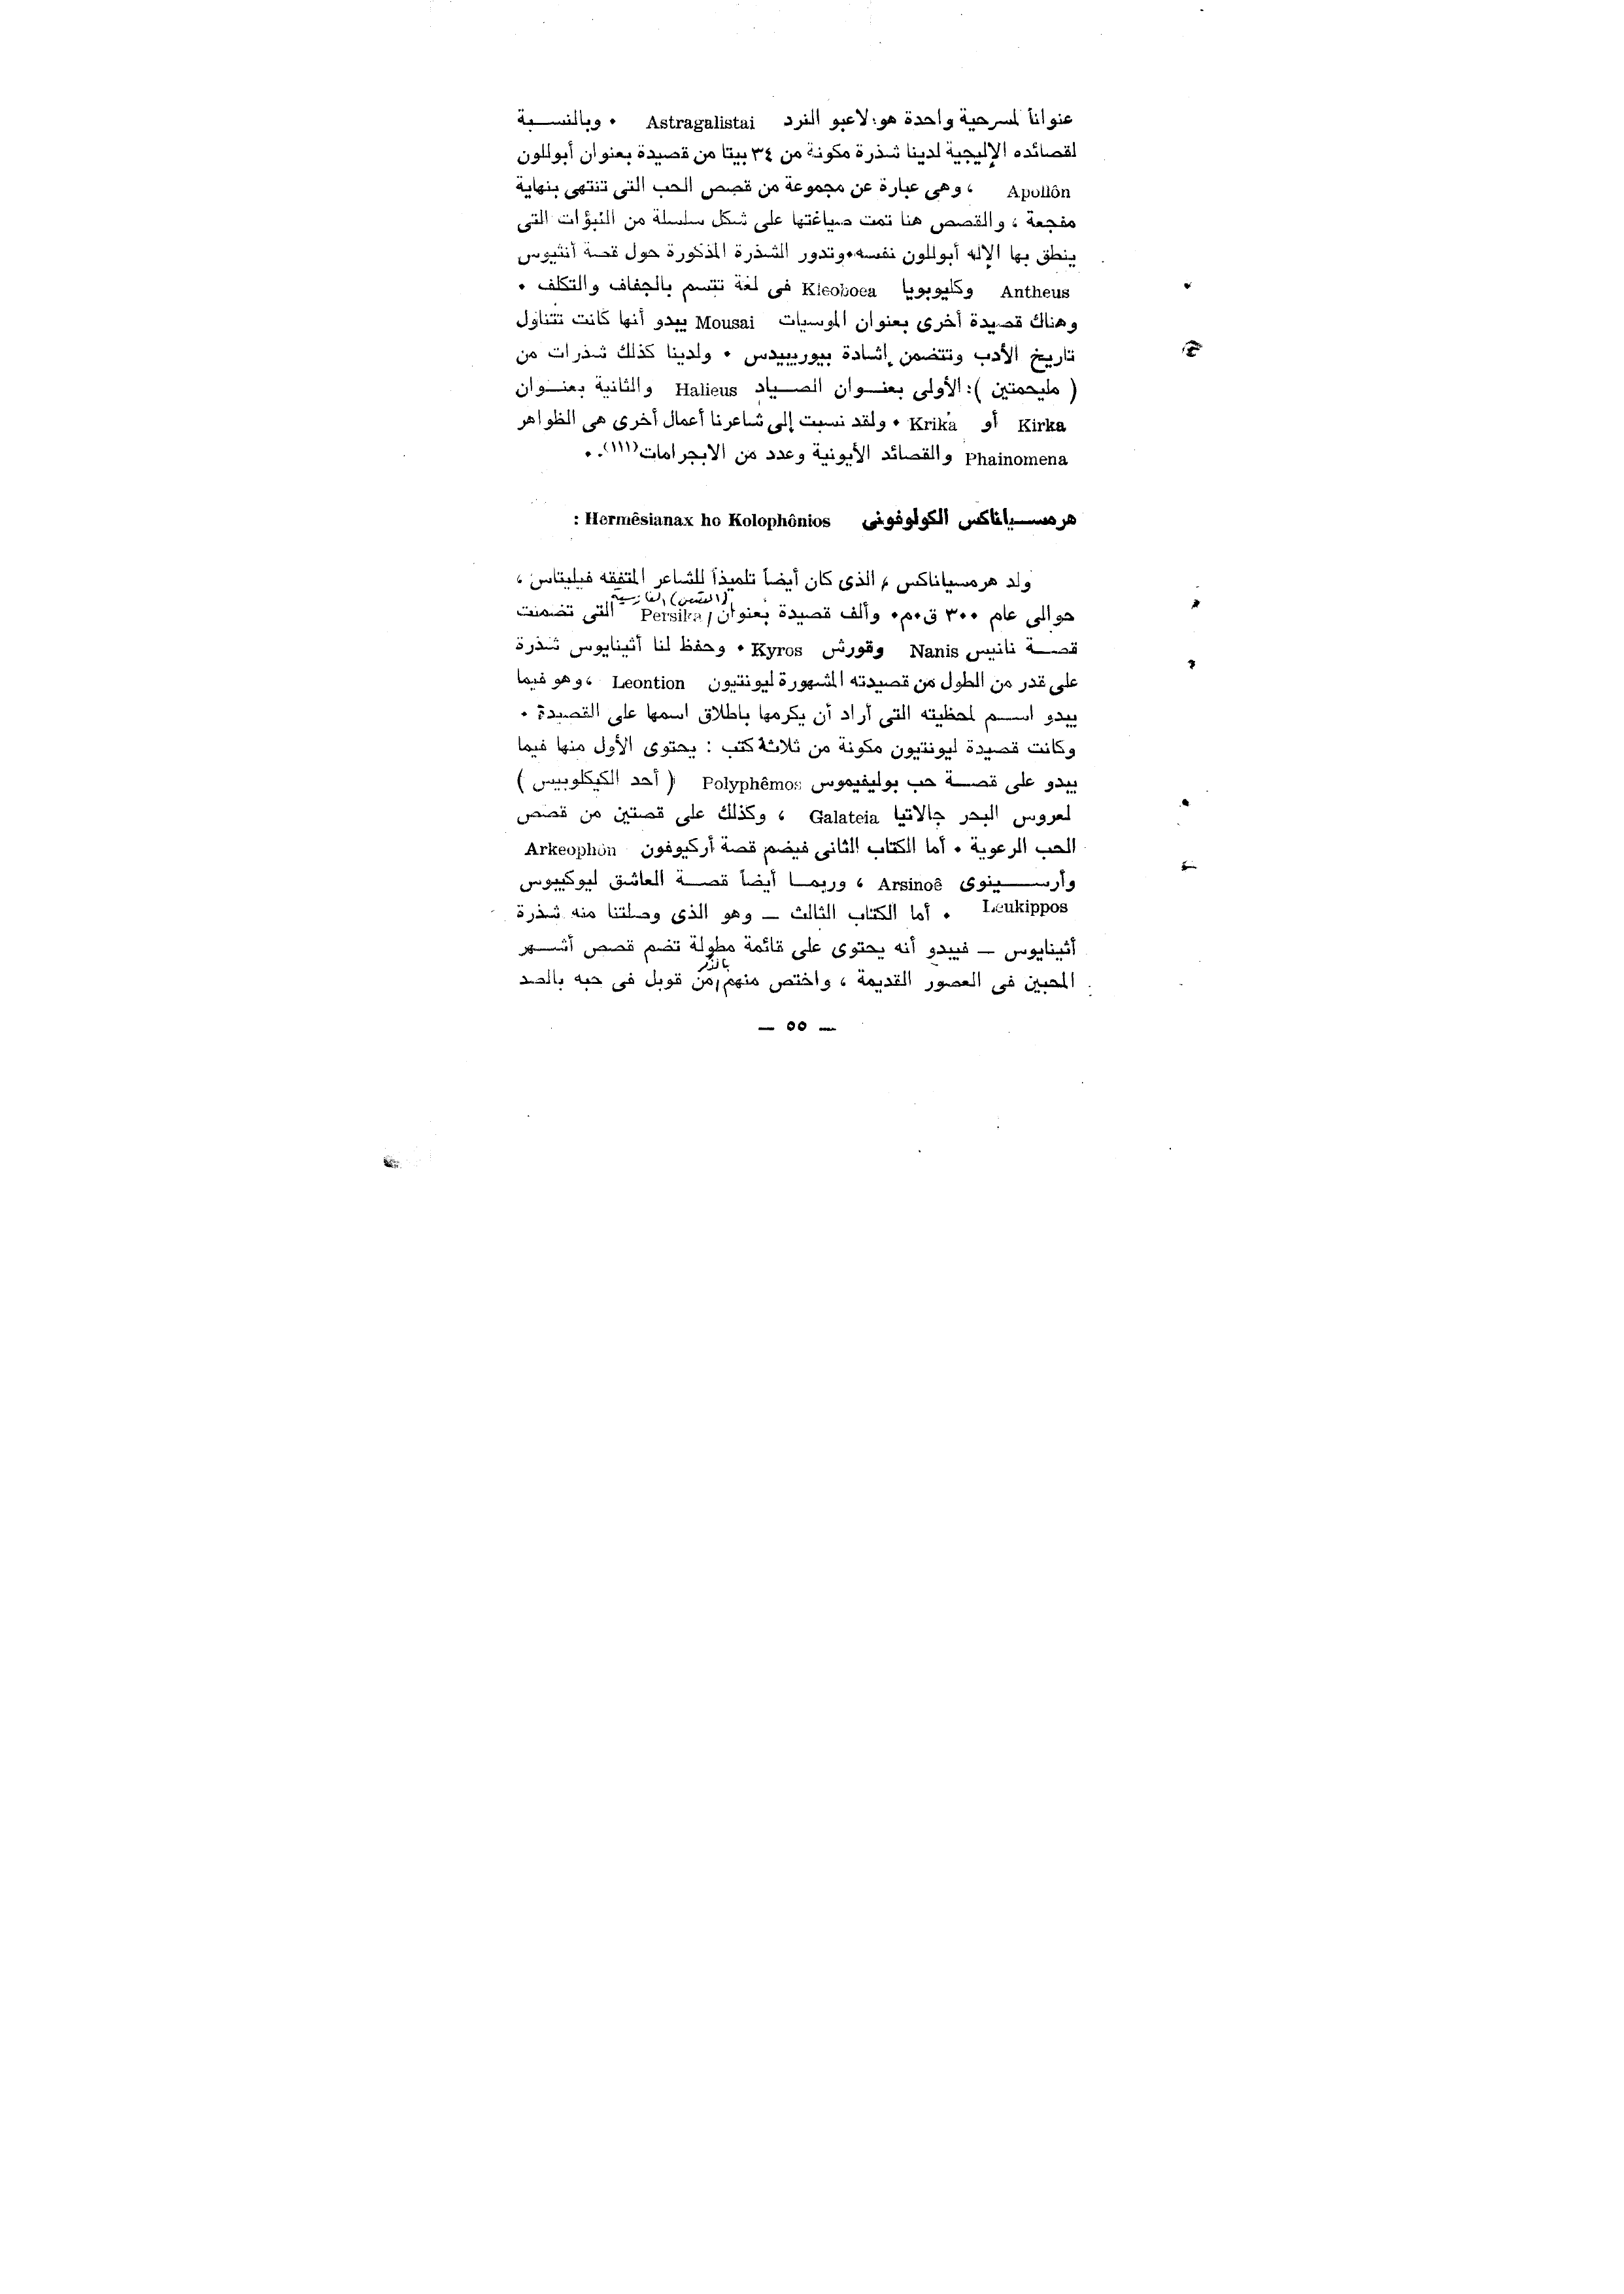 عنواناً لمسرحية واحدة هو: لاعبو النرد Astragalistai ٠ وبالنسبة
لقصائده الإليجية لدينا شذرة مكونة من ٣٤ بيتا من قصيدة بعنوان أبوللون
Apollôn ، وهى عبارة عن مجموعة من قصص الحب التى تنتهى بنهاية
مفجعة ، والقصص هنا تمت صياغتها على شكل سلسلة من النبؤات التى
ينطق بها الإله أبوللون نفسه٠ وتدور الشذرة المذكورة حول قصة أنثيوس
Antheus وكليوبويا Kleoboea فى لغة تتسم بالجفاف والتكلف ٠
وهناك قصيدة أخرى بعنوان الموسيات Mousai يبدو أنها كانت تتناول
تاريخ الأدب وتتضمن إشادة بيوريبيدس ٠ ولدينا كذلك شذرات من
( مليحمتين ): الأولى بعنوان الصياد Halieus والثانية بعنوان
Kirka أو Krika ٠ ولقد نسبت إلى شاعرنا أعمال أخرى هى الظواهر
Phainomena والقصائد الأيونية وعدد من الابجرامات(١١١) ٠
هرمسياناكس الكولوفونى Hermêsianax ho Kolophônios :
ولد هرمسياناكس ، الذى كان أيضاً تلميذاً للشاعر المتفقه فيليتاس ،
(القصص) الفارسية
حوالى عام ٣٠٠ ق٠م٠ وألف قصيدة بعنوان Persika التى تضمنت
قصة نانيس Nanis وقورش Kyros ٠ وحفظ لنا أثينايوس شذرة
على قدر من الطول من قصيدته المشهورة ليونتيون Leontion ، وهو فيما
يبدو اسم لمحظيته التى أراد أن يكرمها باطلاق اسمها على القصيدة ٠
وكانت قصيدة ليونتيون مكونة من ثلاثة كتب : يحتوى الأول منها فيما
يبدو على قصة حب بوليفيموس Polyphêmos ( أحد الكيكلوبيس )
لعروس البحر جالاتيا Galateia ، وكذلك على قصتين من قصص
الحب الرعوية ٠ أما الكتاب الثانى فيضم قصة أركيوفون Arkeophôn
وأرسينوى Arsinoê ، وربما أيضاً قصة العاشق ليوكيبوس
Leukippos ٠ أما الكتاب الثالث — وهو الذى وصلتنا منه شذرة
أثينايوس — فيبدو أنه يحتوى على قائمة مطولة تضم قصص أشهر
بالذكر
المحبين فى العصور القديمة ، واختص منهم من قوبل فى حبه بالصد
— ٥٥ —